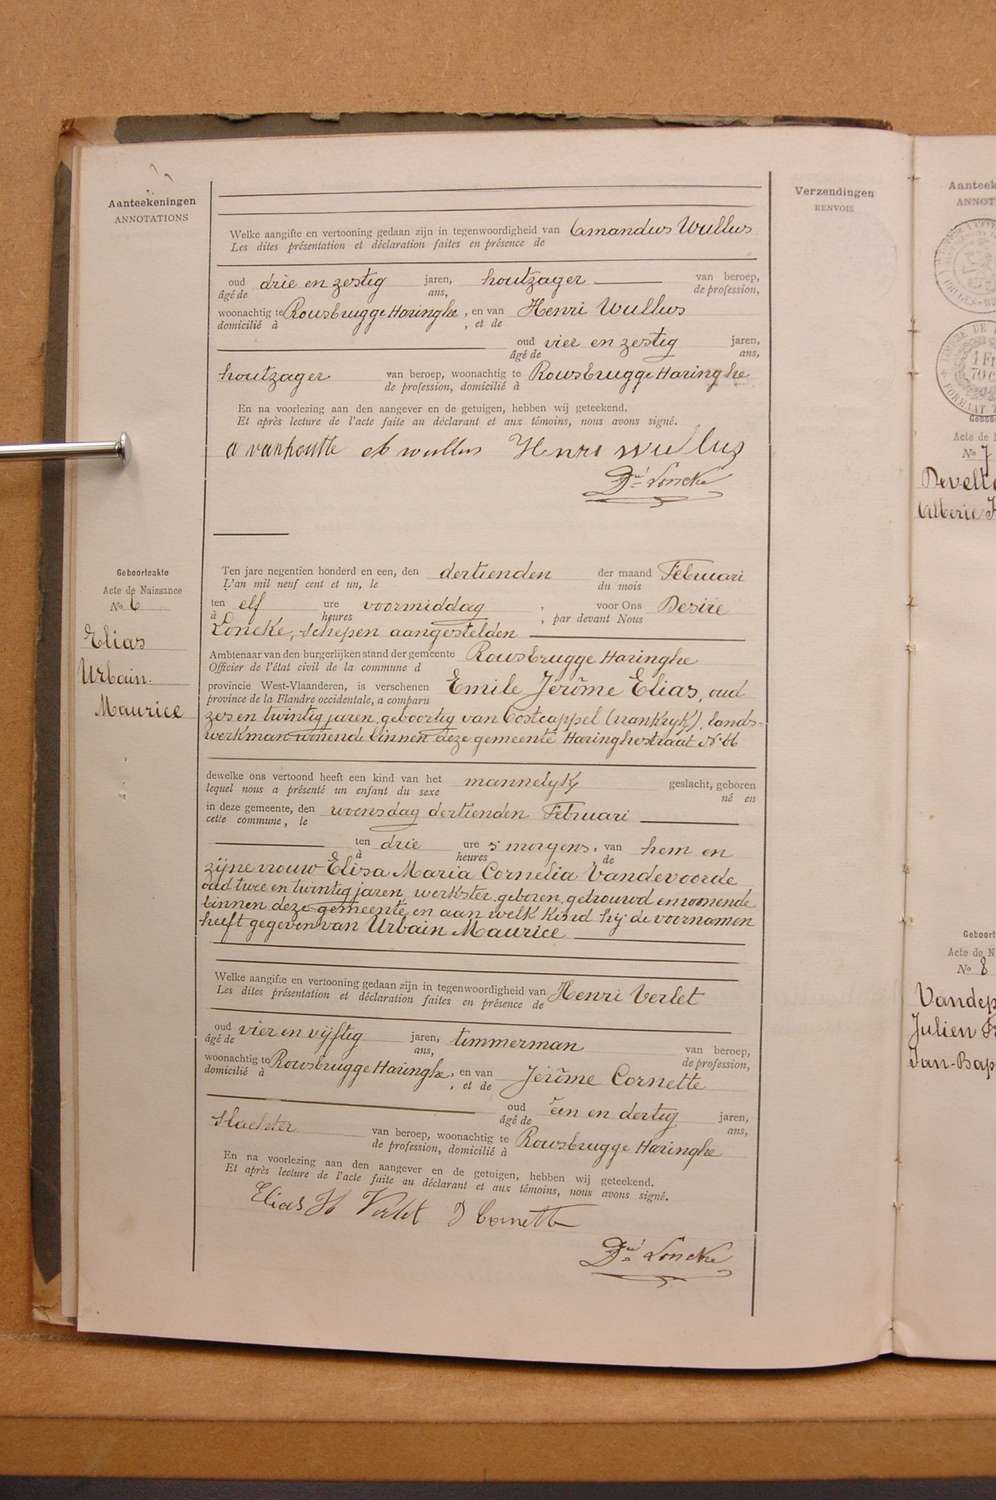 Aanteekeningen
ANNOTATIONS
Verzendingen
RENVOIS
Welke aangifte en vertooning gedaan zijn in tegenwoordigheid van Amandus Wullus
Les dites présentation et déclaration faites en présence de
oud drie en zestig jaren, houtzager van beroep,
âgé de ans, de profession,
woonachtig te Rousbrugge Haringhe, en van Henri Wullus
domicilié à , et de
oud vier en zestig jaren,
âgé de ans,
houtzager van beroep, woonachtig te Rousbrugge Haringhe
de profession, domicilié à
En na voorlezing aan den aangever en de getuigen, hebben wij geteekend.
Et après lecture de l'acte faite au déclarant et aux témoins, nous avons signé.
a vanhoutte wullus Henri wullus
Dré Loncke
Geboorteakte
Acte de Naissance
No 6
Elias
Urbain
Maurice
Ten jare negentien honderd en een, den dertienden der maand Februari
L'an mil neuf cent et un, le du mois
ten elf ure voormiddag , voor Ons Desiré
à heures , par devant Nous
Loncke, schepen aangestelden
Ambtenaar van den burgerlijken stand der gemeente Rousbrugge Haringhe
Officier de l'état civil de la commune d
provincie West-Vlaanderen, is verschenen Emile Jérôme Elias, oud
province de la Flandre occidentale, a comparu
zes en twintig jaren, geboortig van Oostcappel (frankryk), lands-
werkman wonende binnen deze gemeente Haringhestraat No 66
dewelke ons vertoond heeft een kind van het mannelyk geslacht, geboren
lequel nous a présenté un enfant du sexe né en
in deze gemeente, den woensdag dertienden Februari
cette commune, le
ten drie ure s morgens, van hem en
à heures de
zijne vrouw Elisa Maria Cornelia Vandevoorde
oud twee en twintig jaren, werkster, geboren, getrouwd en wonende
binnen deze gemeente, en aan welk kind hij de voornamen
heeft gegeven van Urbain Maurice
Welke aangifte en vertooning gedaan zijn in tegenwoordigheid van Henri Verlet
Les dites présentation et déclaration faites en présence de
oud vier en vijftig jaren, timmerman van beroep,
âgé de ans, de profession,
woonachtig te Rousbrugge Haringhe, en van Jérôme Cornette
domicilié à , et de
oud één en dertig jaren,
âgé de ans,
slachter van beroep, woonachtig te Rousbrugge Haringhe
de profession, domicilié à
En na voorlezing aan den aangever en de getuigen, hebben wij geteekend.
Et après lecture de l'acte faite au déclarant et aux témoins, nous avons signé.
Elias H Verlet J Cornette
Dré Loncke
Aanteek
ANNOT
1 Fr
70 c
Acte de N
No 7
Develt
Alberic
Geboort
Acte de N
No 8
Vandep
Julien
Van-Bap